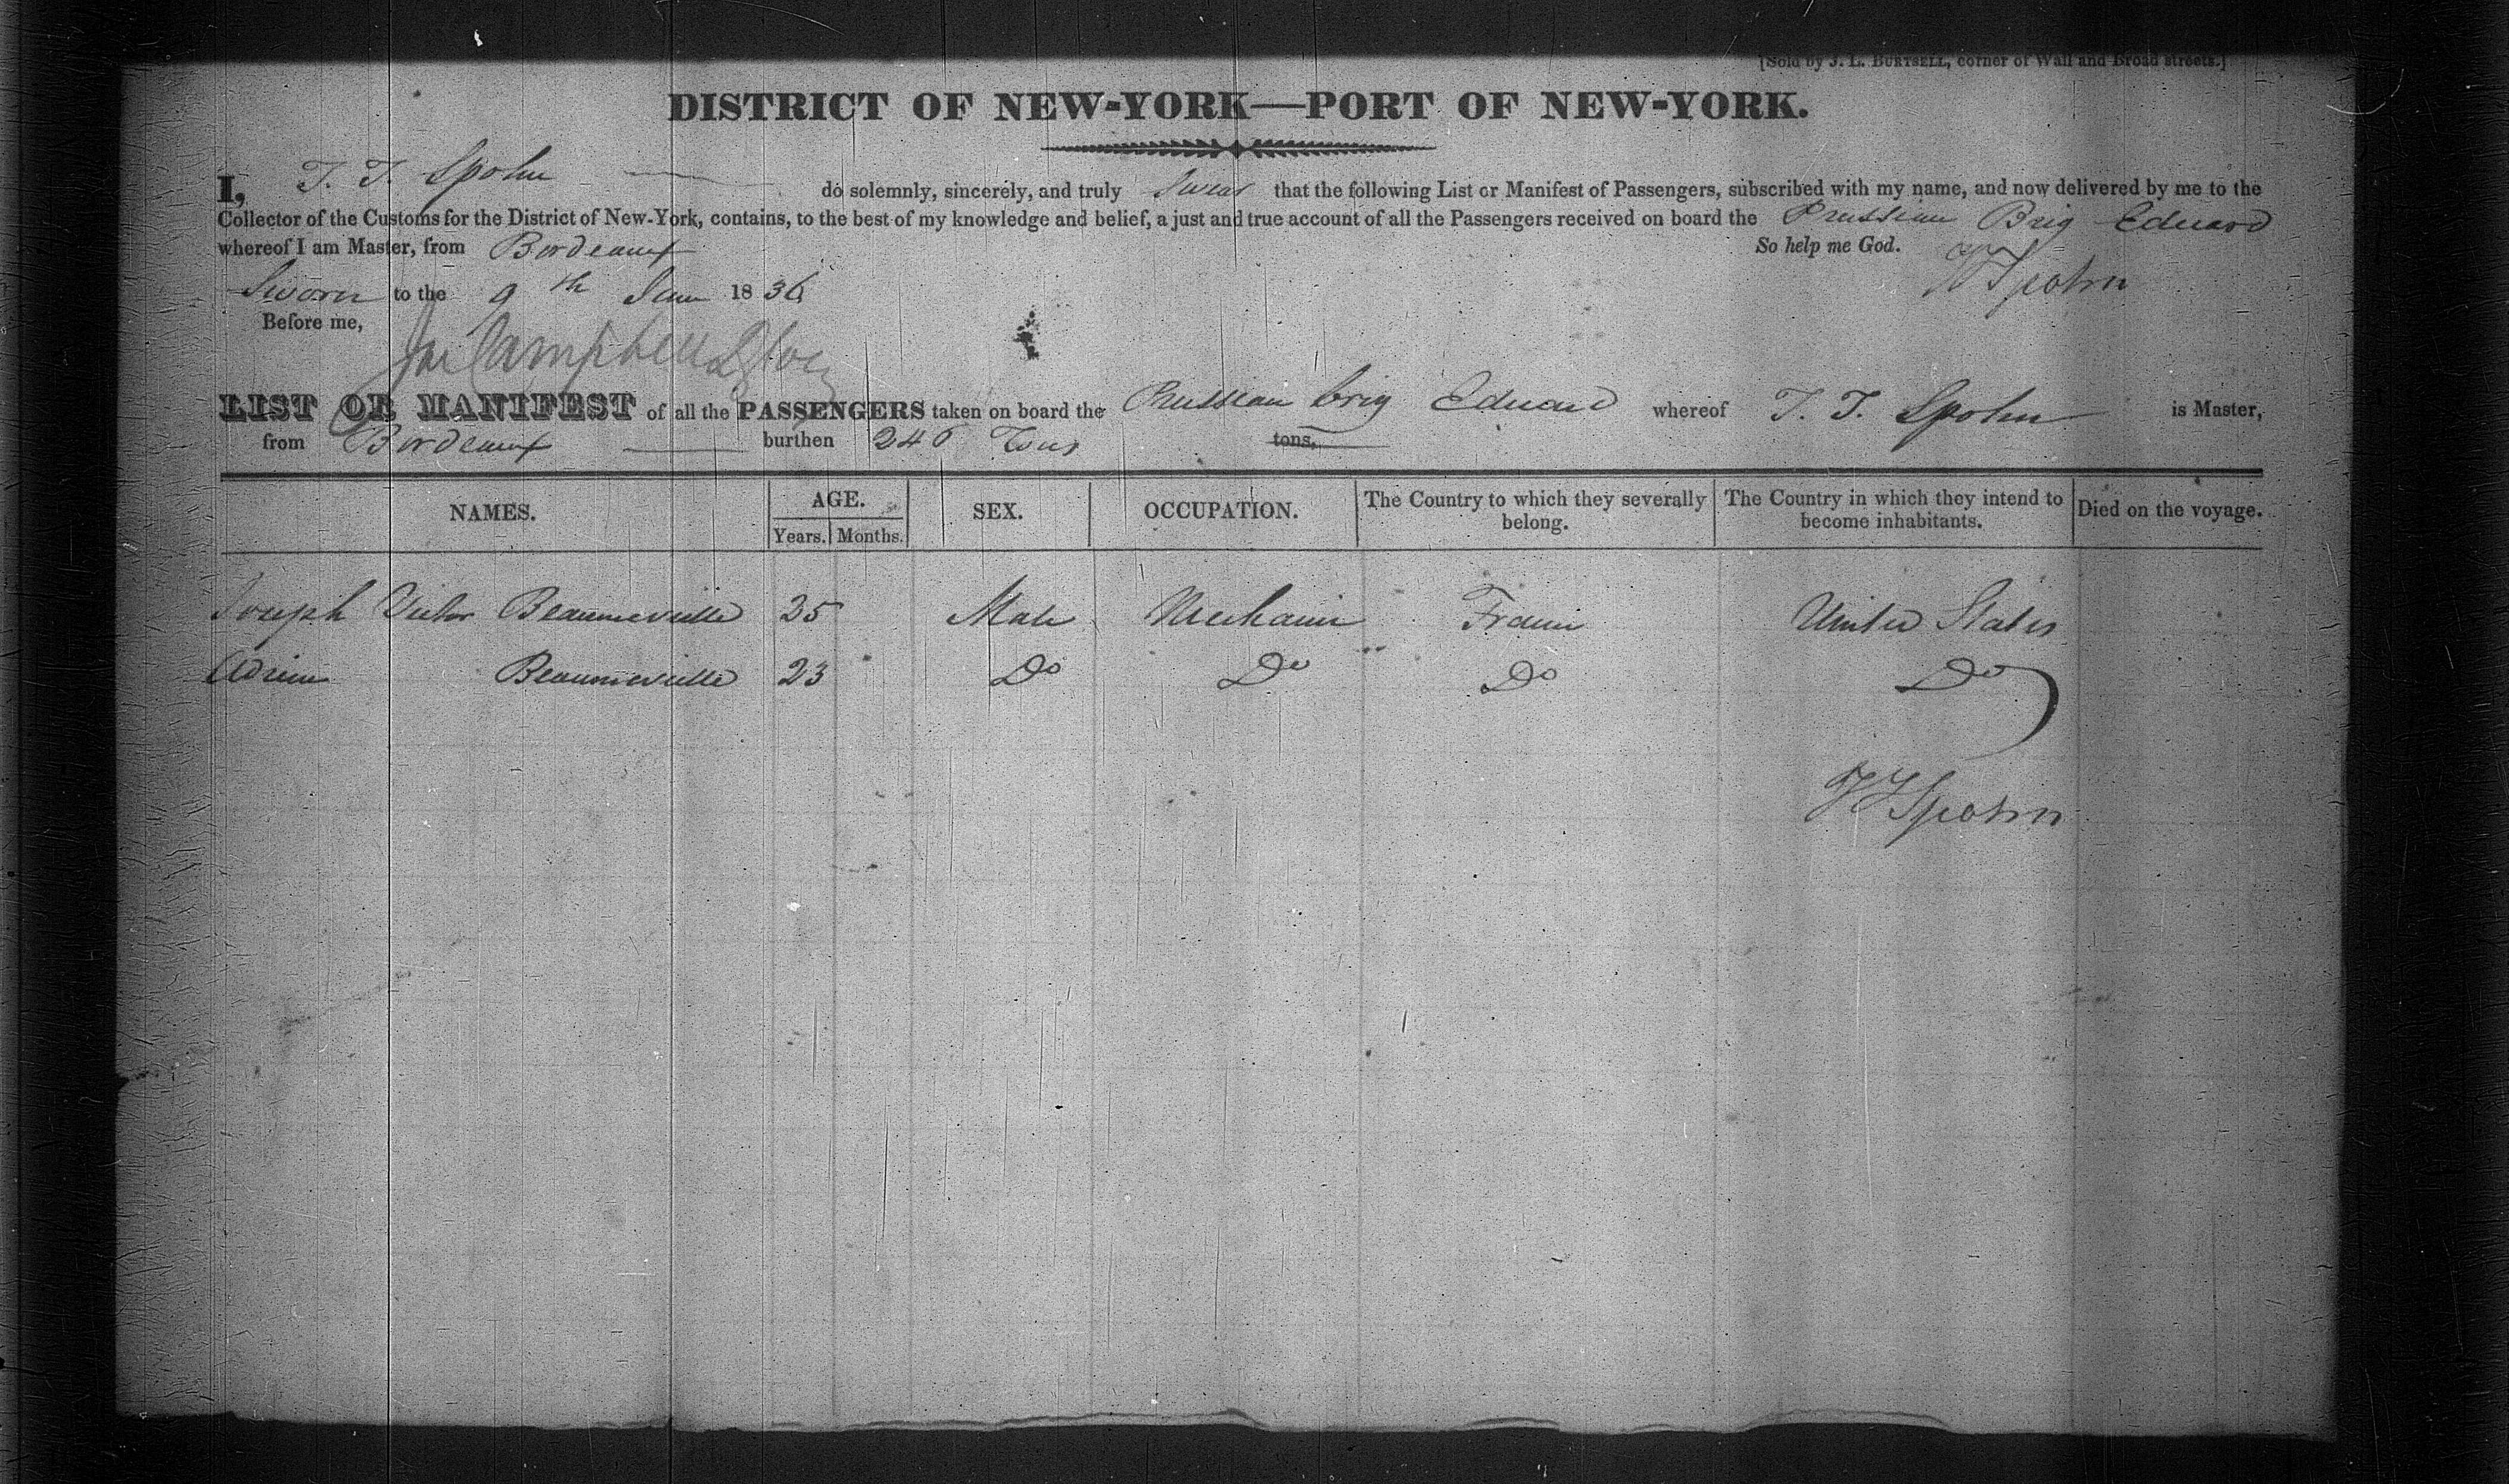 [Sold by J. L. BURTSELL, corner of Wall and Broad streets.]
DISTRICT OF NEW-YORK—PORT OF NEW-YORK.
I, T. T. Spohn do solemnly, sincerely, and truly Swear that the following List or Manifest of Passengers, subscribed with my name, and now delivered by me to the
Collector of the Customs for the District of New-York, contains, to the best of my knowledge and belief, a just and true account of all the Passengers received on board the Prussian Brig Eduard
whereof I am Master, from Bordeaux So help me God.
Spohn
Sworn to the 9th Jan 1836
Before me,
Campbell
LIST OR MANIFEST of all the PASSENGERS taken on board the Prussian brig Eduard whereof T. T. Spohn is Master,
from Bordeaux burthen 246 Tons tons.
NAMES. AGE. SEX. OCCUPATION. The Country to which they severally belong. The Country in which they intend to become inhabitants. Died on the voyage.
Years. Months.
Joseph Victor Beaumeville 35 Male Mechanic France United States
Adrien Beaumeville 23 Do Do Do Do
Spohn